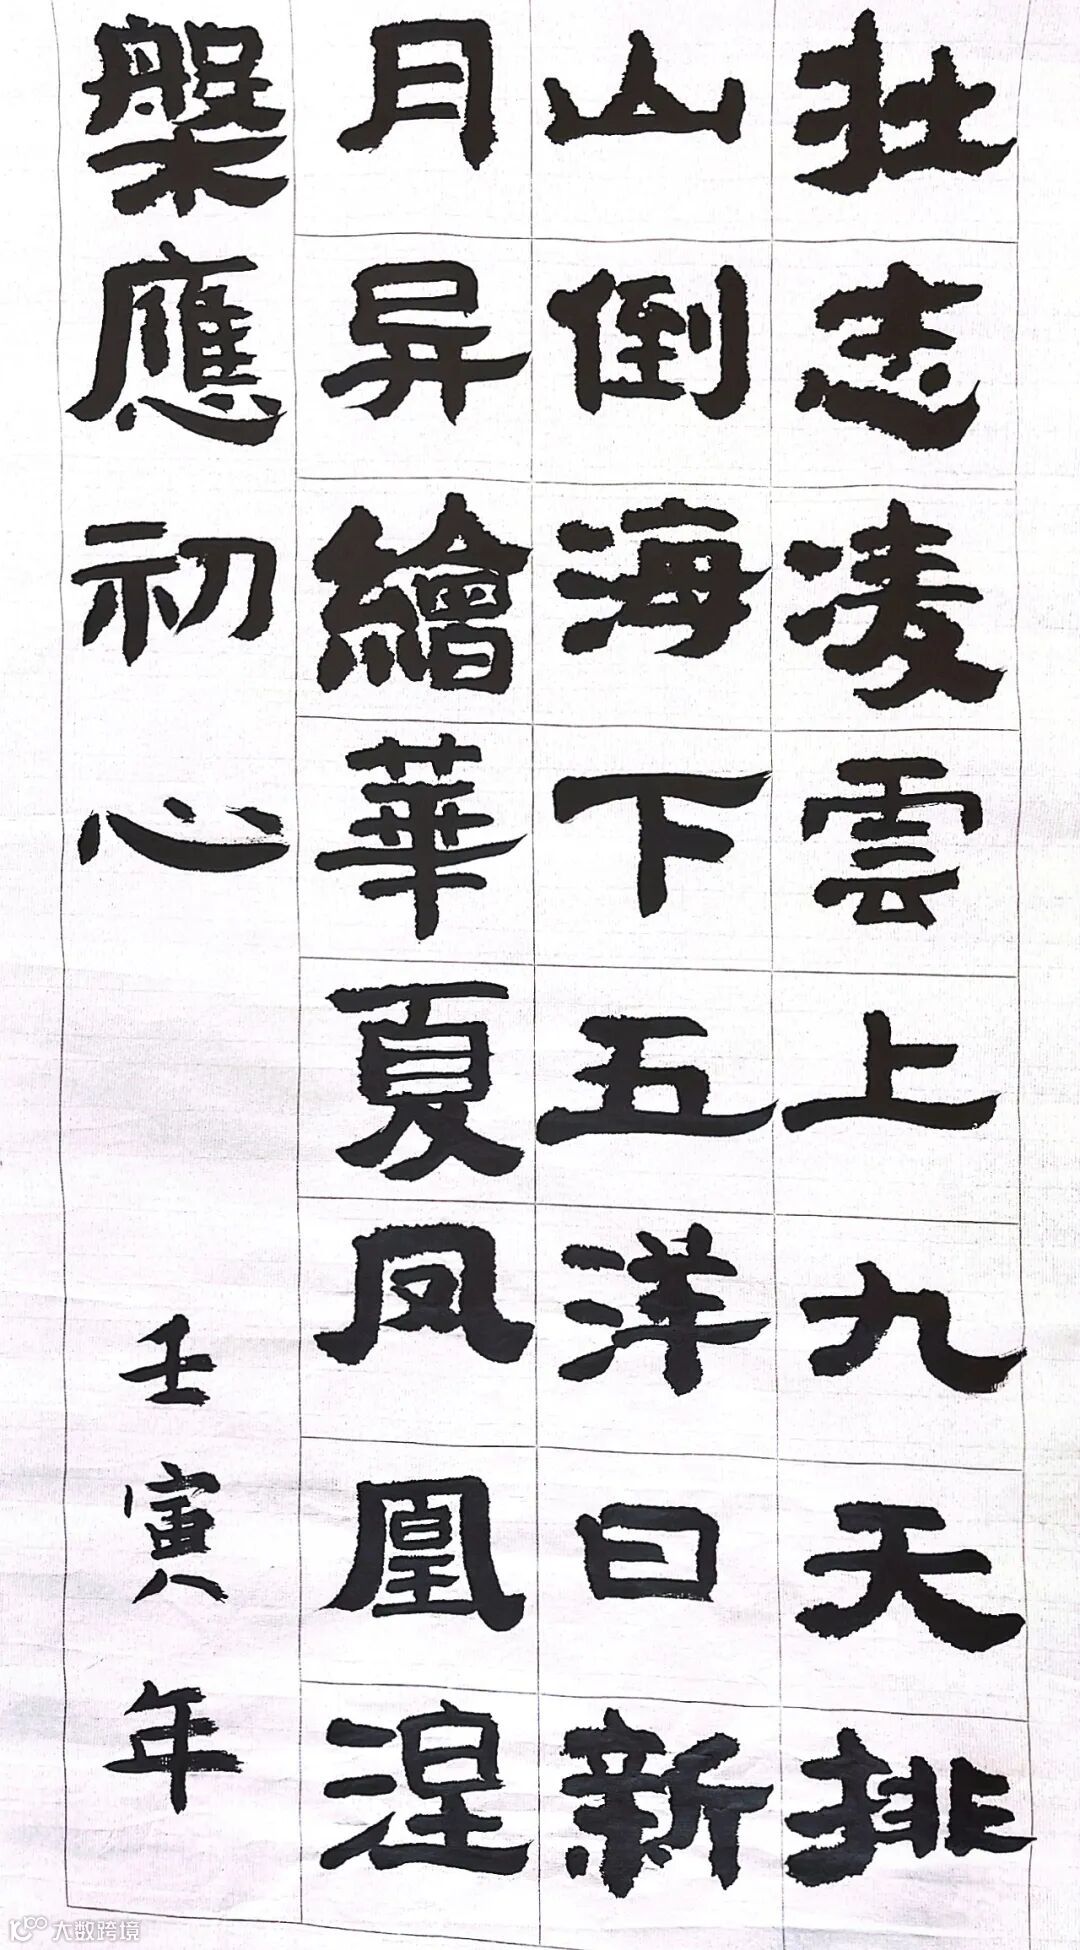 壮志凌雲上九天排
山倒海下五洋日新
月异繪華夏凤凰涅
槃應初心
壬寅年
大数跨境